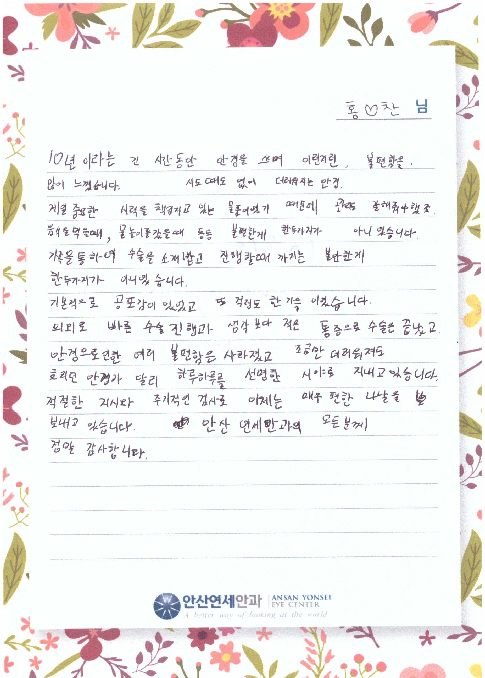 홍♡찬 님
10년 이라는 긴 시간동안 안경을 쓰며 이런저런, 불편함을.
많이 느꼈습니다. 시도 때도 없이 더러워지는 안경.
제일 중요한 시력을 책임지고 있는 물품이었기 때문에 관리 잘해줘야했고
물놀이를갔을때 등등 불편한게 한두가지가 아니 었습니다.
가족을 통하여 수술을 소개받고 진행할때 까지는 불안한게
한두가지가 아니었 습니다.
기본적으로 공포감이 있었고 걱정도 한가득 이었습니다.
의외로 빠른 수술 진행과 생각 보다 적은 통증으로 수술은 끝났고
안경으로인한 여러 불편함은 사라졌고 조금만 더러워져도
흐리던 안경과 달리 하루하루를 선명한 시야로 지내고 있습니다.
적절한 지시와 주기적인 검사로 이제는 매우 편한 나날을
보내고 있습니다. 안산 연세안과의 모든분께
정말 감사합니다.
안산연세안과 ANSAN YONSEI EYE CENTER
A better way of looking at the world